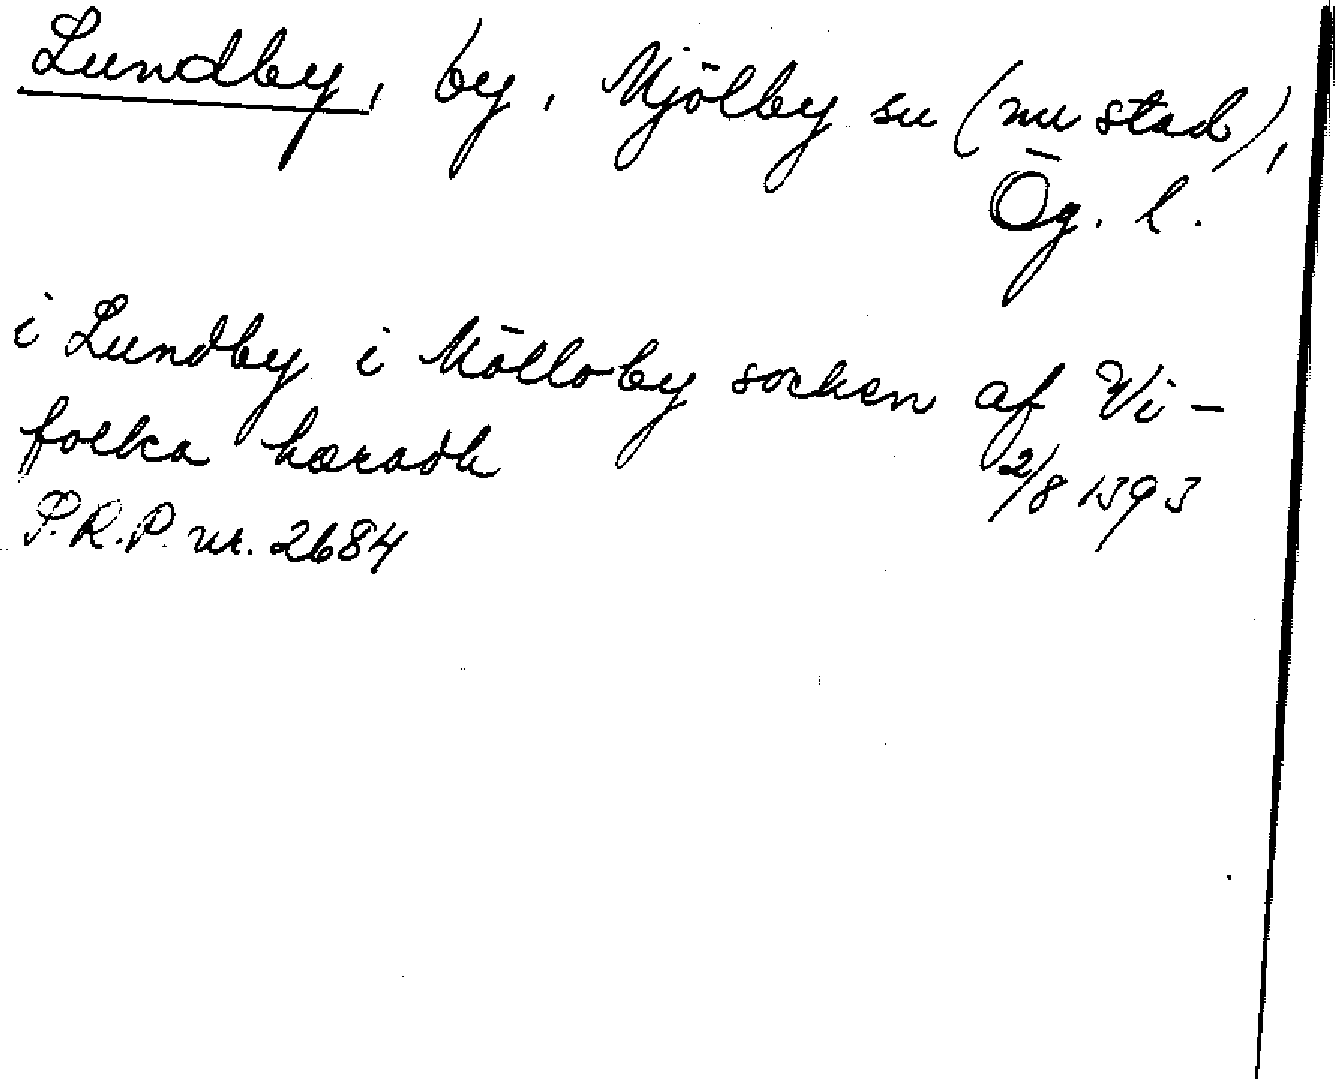 Lundby, by, Mjölby sn (nu stad),
Ög. l.
i Lundby i Mölloby socken af Vi-
folka hæradh
2/8 1393
P.R.P. nr. 2684